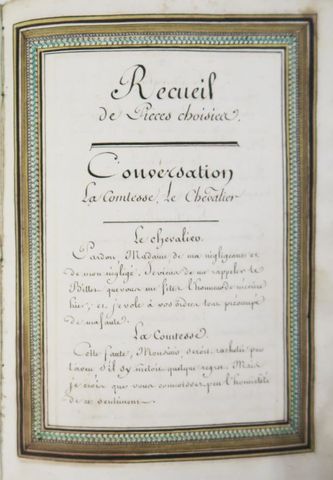 Recueil
de Pieces choisies.
Conversation
La Comtesse, Le Chevalier
Le chevalier.
Pardon, Madame de ma négligence et
de mon négligé. Je viens de me rappeler le
Billet que vous me fites l'honneur de m'ecrire
hier, et je vole à vos ordres tout
de ma faute.
La Comtesse.
Cette faute, Monsieur seroit rachetée par
l'aveu s'il s'y mêloit quelque regret. Mais
je crois que vous connoissez peu l'honnêteté
de ce sentiment.